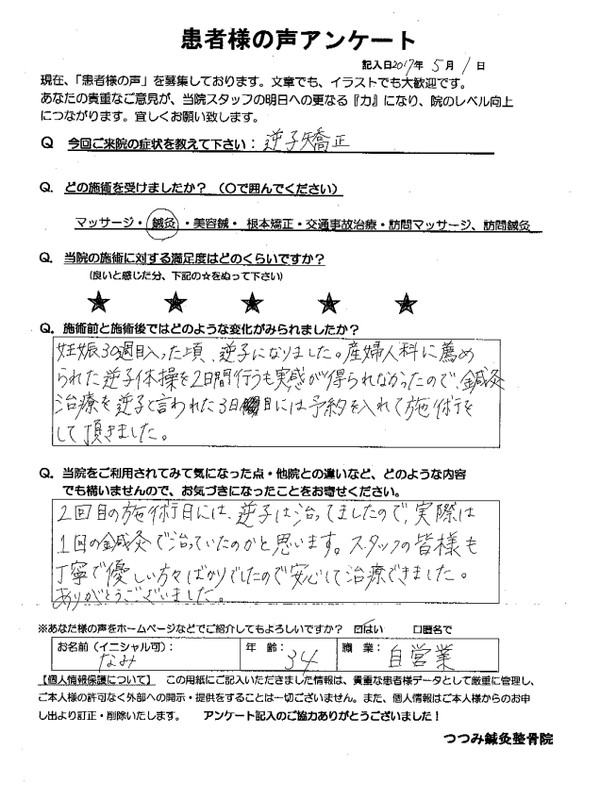 患者様の声アンケート
記入日2017年 5月 1日
現在、「患者様の声」を募集しております。文章でも、イラストでも大歓迎です。
あなたの貴重なご意見が、当院スタッフの明日への更なる『力』になり、院のレベル向上
につながります。宜しくお願い致します。
Q 今回ご来院の症状を教えて下さい：逆子矯正
Q. どの施術を受けましたか？（〇で囲んでください）
マッサージ・鍼灸・美容鍼・根本矯正・交通事故治療・訪問マッサージ、訪問鍼灸
Q. 当院の施術に対する満足度はどのくらいですか？
（良いと感じた分、下記の☆をぬって下さい）
★ ★ ★ ★ ★
Q. 施術前と施術後ではどのような変化がみられましたか？
妊娠30週目入った頃、逆子になりました。産婦人科に薦め
られた逆子体操を2日間行うも実感が得られなかったので、鍼灸
治療を逆子と言われた3日目には予約を入れて施術を
して頂きました。
Q. 当院をご利用されてみて気になった点・他院との違いなど、どのような内容
でも構いませんので、お気づきになったことをお寄せください。
2回目の施術日には、逆子は治ってましたので、実際は
1回の鍼灸で治っていたのかと思います。スタッフの皆様も
丁寧で優しい方々ばかりでしたので安心して治療できました。
ありがとうございました。
※あなた様の声をホームページなどでご紹介してもよろしいですか？ ☑はい □匿名で
お名前（イニシャル可）： なみ 年 齢： 34 職 業： 自営業
【個人情報保護について】 この用紙にご記入いただきました情報は、貴重な患者様データとして厳重に管理し、
ご本人様の許可なく外部への開示・提供をすることは一切ございません。また、個人情報はご本人様からのお申
し出より訂正・削除いたします。 アンケート記入のご協力ありがとうございました！
つつみ鍼灸整骨院